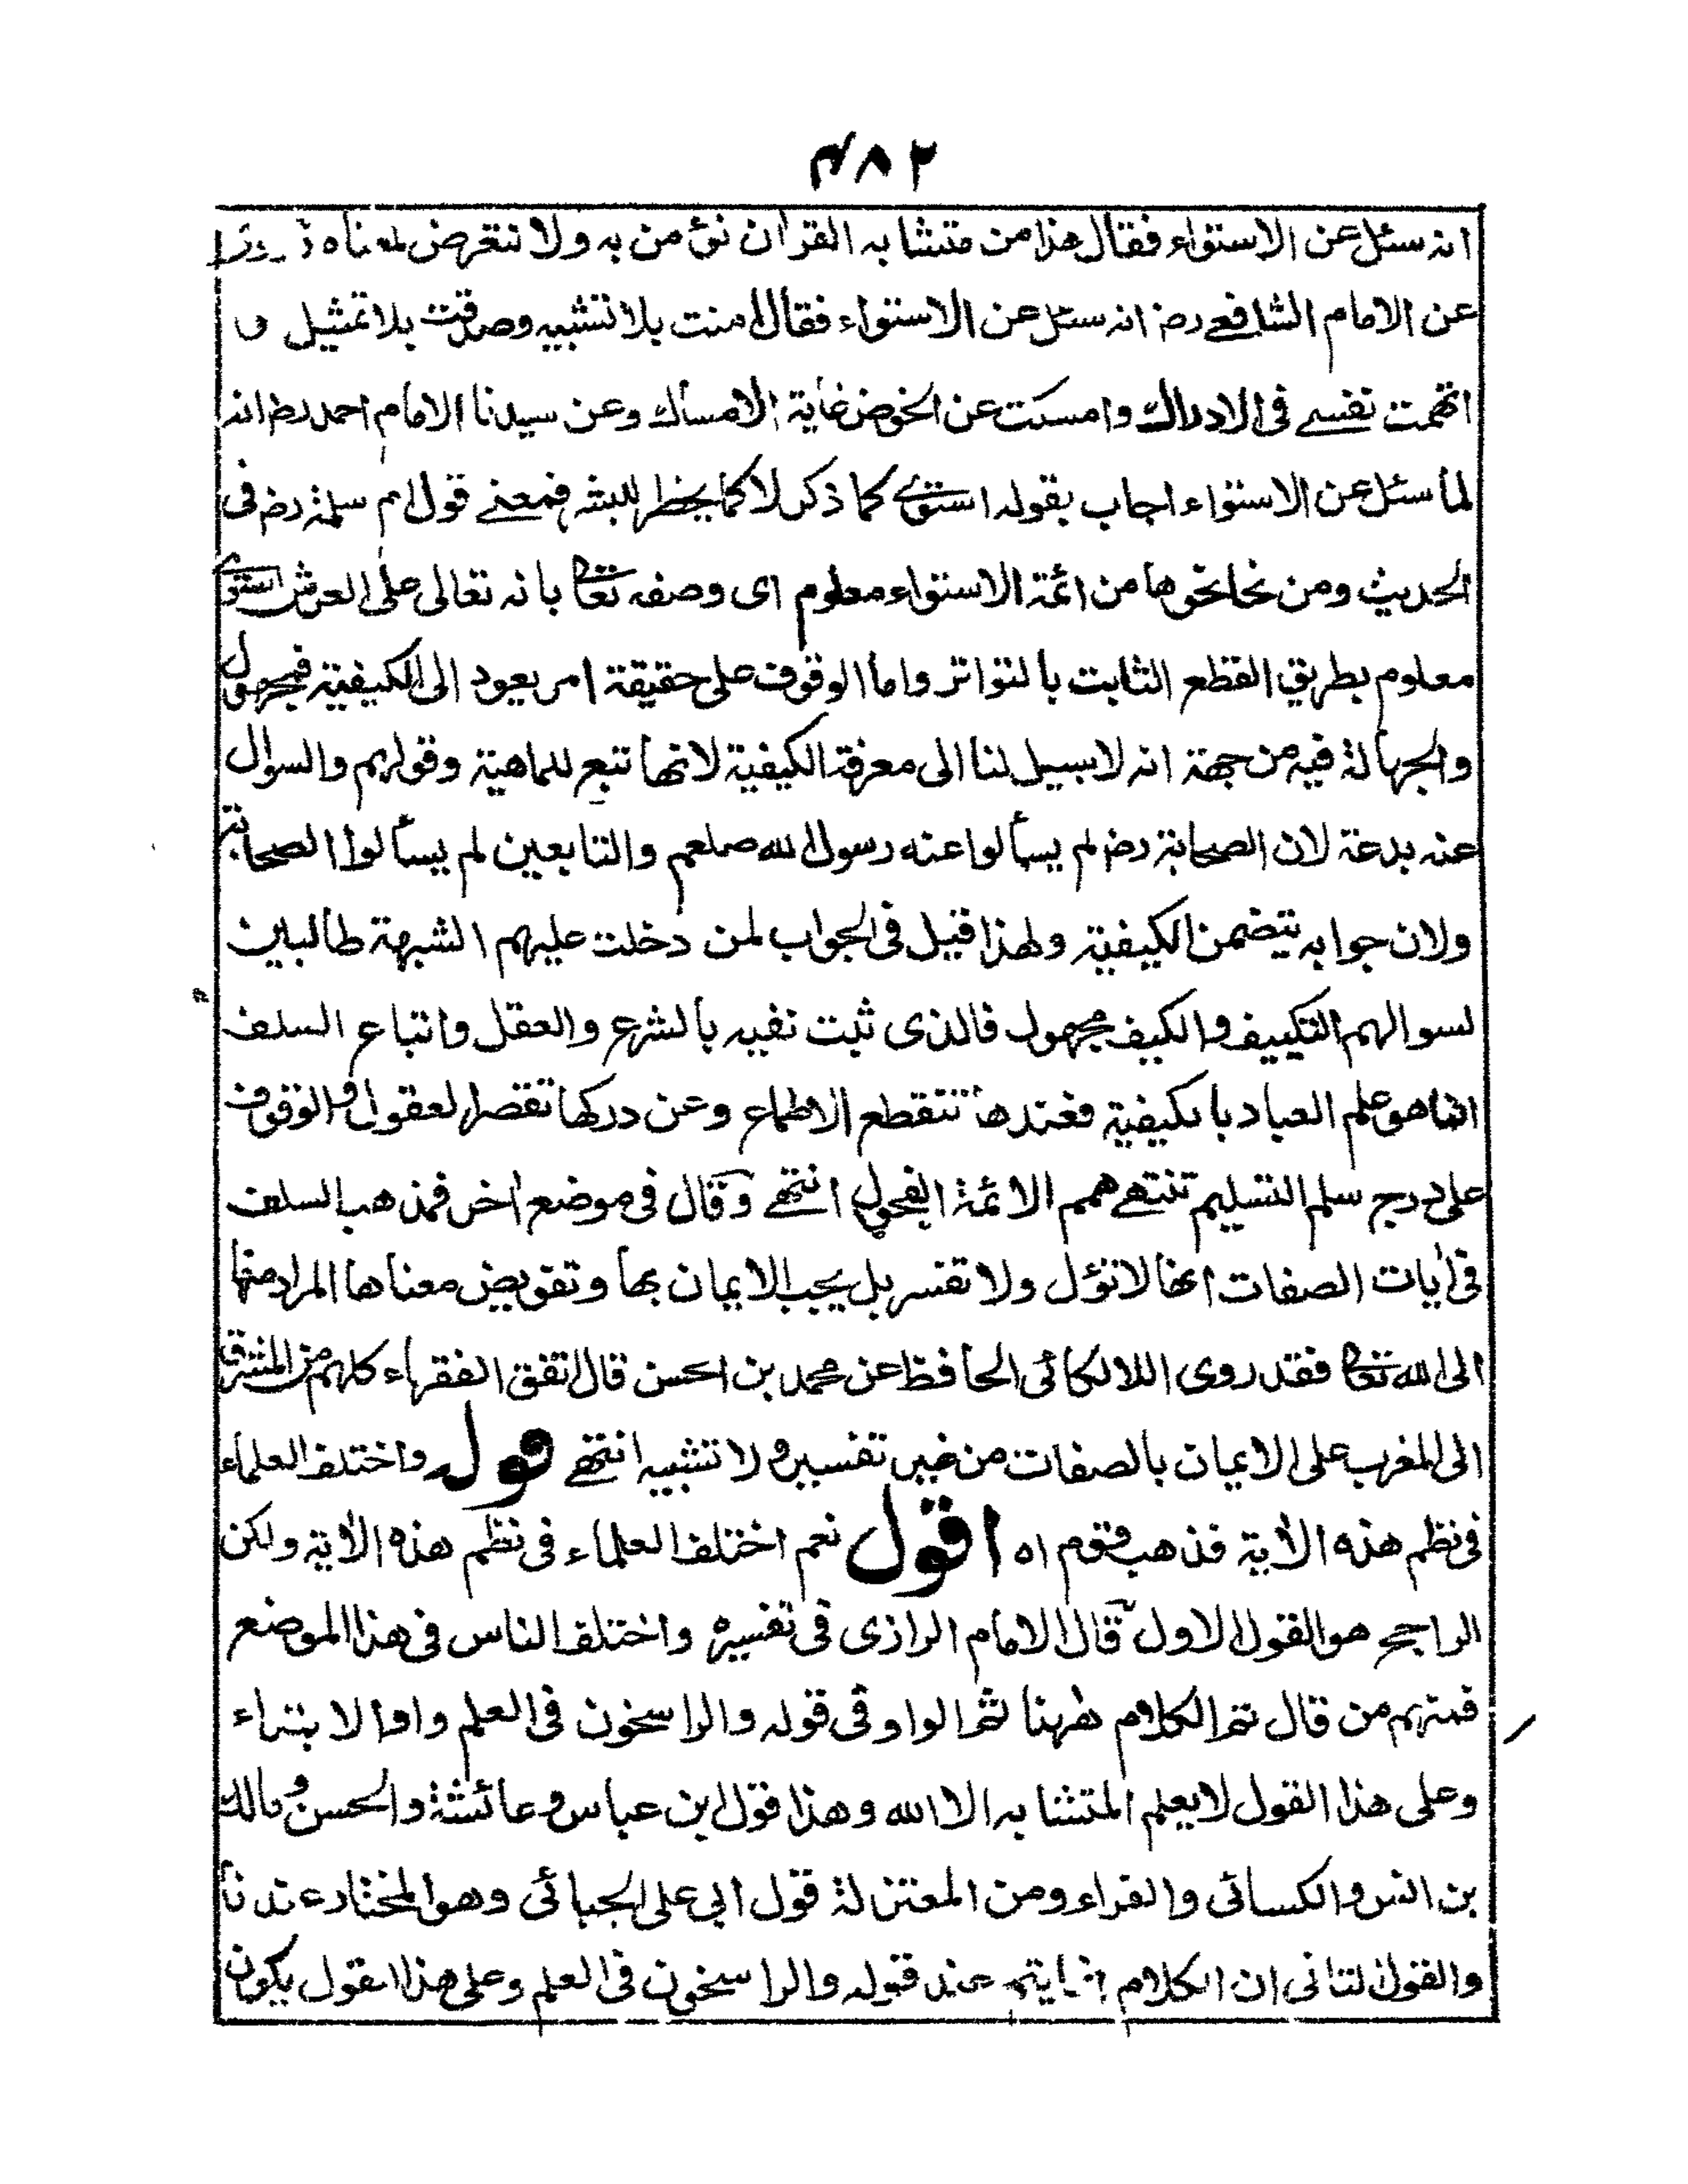 ٤٨٢
انه سئل عن الاستواء فقال هذا من متشابه القرآن نؤمن به ولا نتعرض لمعناه
عن الامام الشافعي رضـ انه سئل عن الاستواء فقال امنت بلا تشبيه وصدقت بلا تمثيل و
اتهمت نفسي فى الادراك وامسكت عن الخوض غاية الامساك وعن سيدنا الامام احمد رضـ انه
لما سئل عن الاستواء اجاب بقوله استوى كما ذكر لا كما يخطر للبشر فمعنى قول ام سلمة رضـ فى
الحديث ومن نحا نحوها من ائمة الاستواء معلوم اى وصفه تعا بانه تعالى على العرش استوى
معلوم بطريق القطع الثابت بالتواتر واما الوقوف على حقيقة امر يعود الى الكيفية فمجهول
والجهالة فيه من جهة انه لا سبيل لنا الى معرفة الكيفية لانها تتبع للماهية وقولهم والسوال
عنه بدعة لان الصحابة رضـ لم يسألوا عنه رسول الله صلعم والتابعين لم يسألوا الصحابة
ولان جوابه يتضمن الكيفية ولهذا قيل فى الجواب لمن دخلت عليهم الشبهة طالبين
لسوالهم التكييف والكيف مجهول فالذى ثبت نفيه بالشرع والعقل واتباع السلف
انما هو علم العباد بالكيفية فعندها تنقطع الاطماع وعن دركها تقصر العقول والوقوف
على درج سلم التسليم تنتهى همم الائمة الفحول انتهى وقال فى موضع اخر فمذهب السلف
فى ايات الصفات انها لا تؤل ولا تفسر بل يجب الايمان بها وتفويض معناها المراد منها
الى الله تعا فقد روى اللالكائى الحافظ عن محمد بن الحسن قال اتفق الفقهاء كلهم من المشرق
الى المغرب على الايمان بالصفات من غير تفسير ولا تشبيه انتهى قوله واختلف العلماء
فى نظم هذه الآية فذهب قوم اه اقول نعم اختلف العلماء فى نظم هذه الآية ولكن
الراجح هو القول الاول قال الامام الرازى فى تفسيره واختلف الناس فى هذا الموضع
فمنهم من قال تم الكلام ههنا ثم الواو فى قوله والراسخون فى العلم واو الابتداء
وعلى هذا القول لا يعلم المتشابه الا الله وهذا قول ابن عباس وعائشة والحسن ومالك
بن انس والكسائى والفراء ومن المعتزلة قول ابي على الجبائى وهو المختار عندنا
والقول الثانى ان الكلام انما يتم عند قوله والراسخون فى العلم وعلى هذا القول يكون